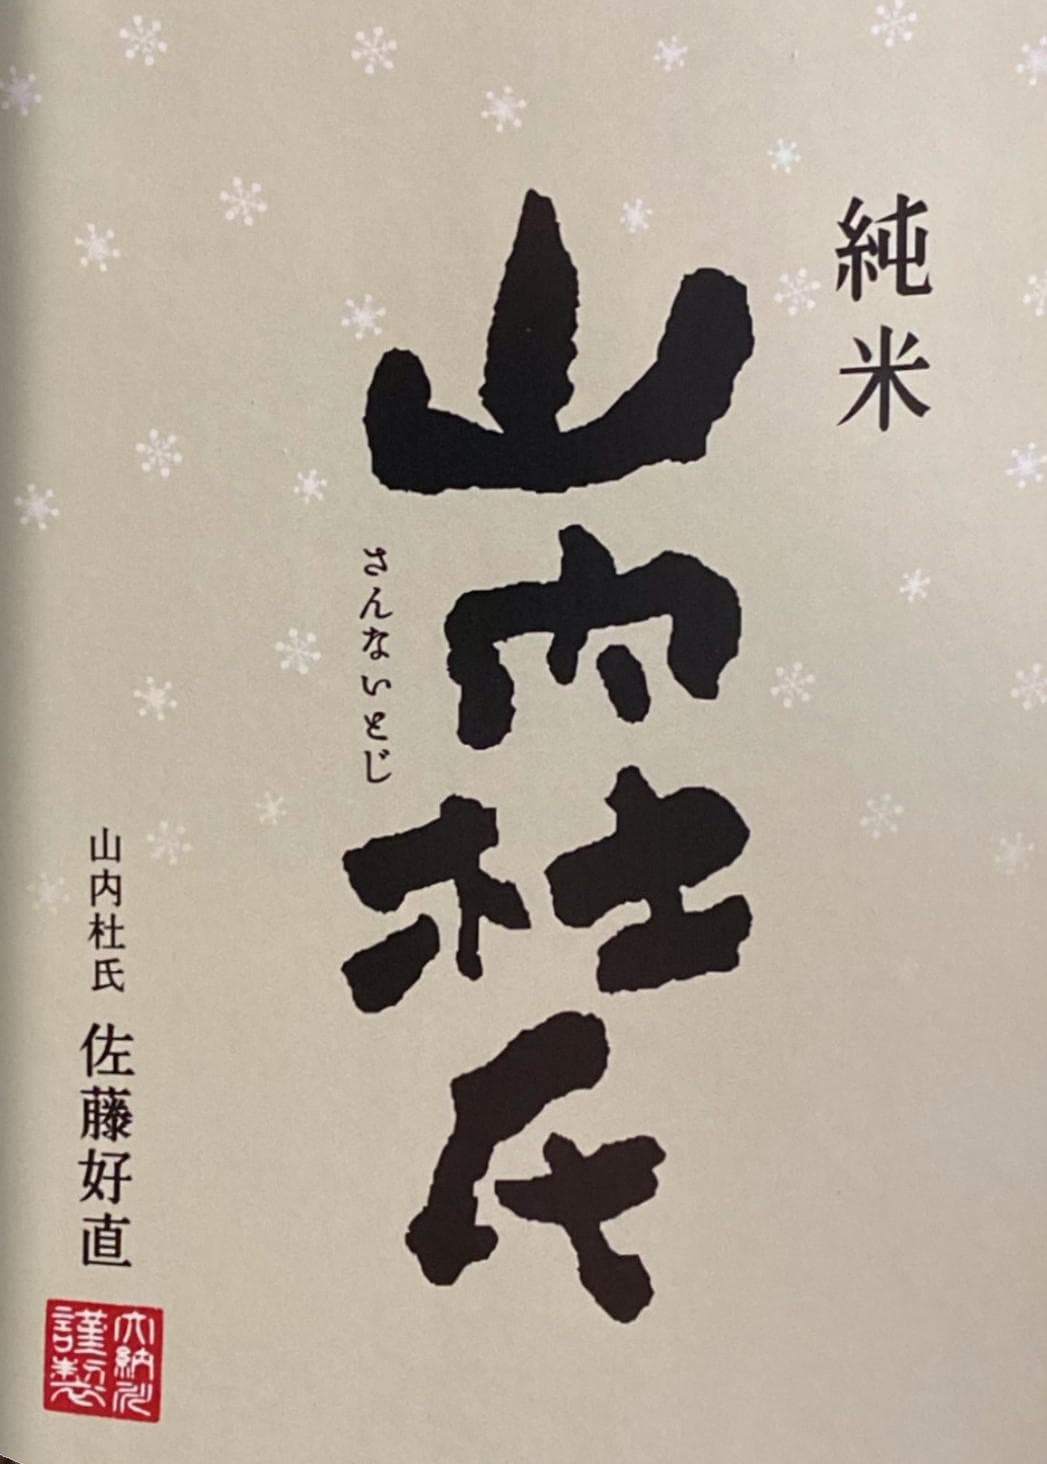 純米
山内杜氏
さんないとじ
山内杜氏 佐藤好直
大納川
謹製